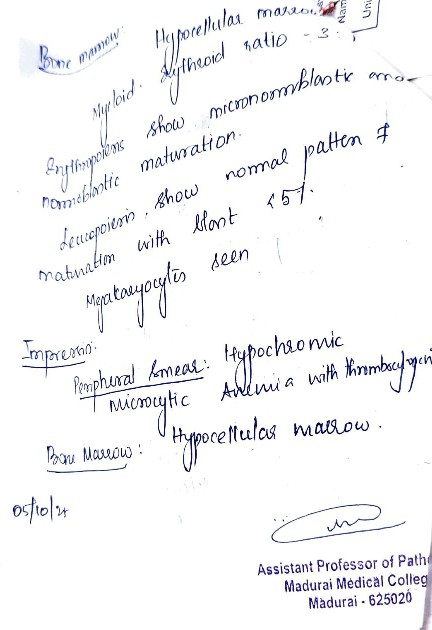 Bone marrow: Hypocellular marrow.
Nam
Uni
Myeloid: Erythroid ratio - 3:1
Erythropoiesis show micronormoblastic and
normoblastic maturation.
Leucopoiesis show normal patten of
maturation with blast <5%.
Megakaryocytes seen
Impression:
Peripheral smear: Hypochromic
Microcytic Anemia with thrombocytopeni
Bone Marrow: Hypocellular marrow.
05/10/24
Assistant Professor of Path
Madurai Medical Colleg
Madurai - 625020